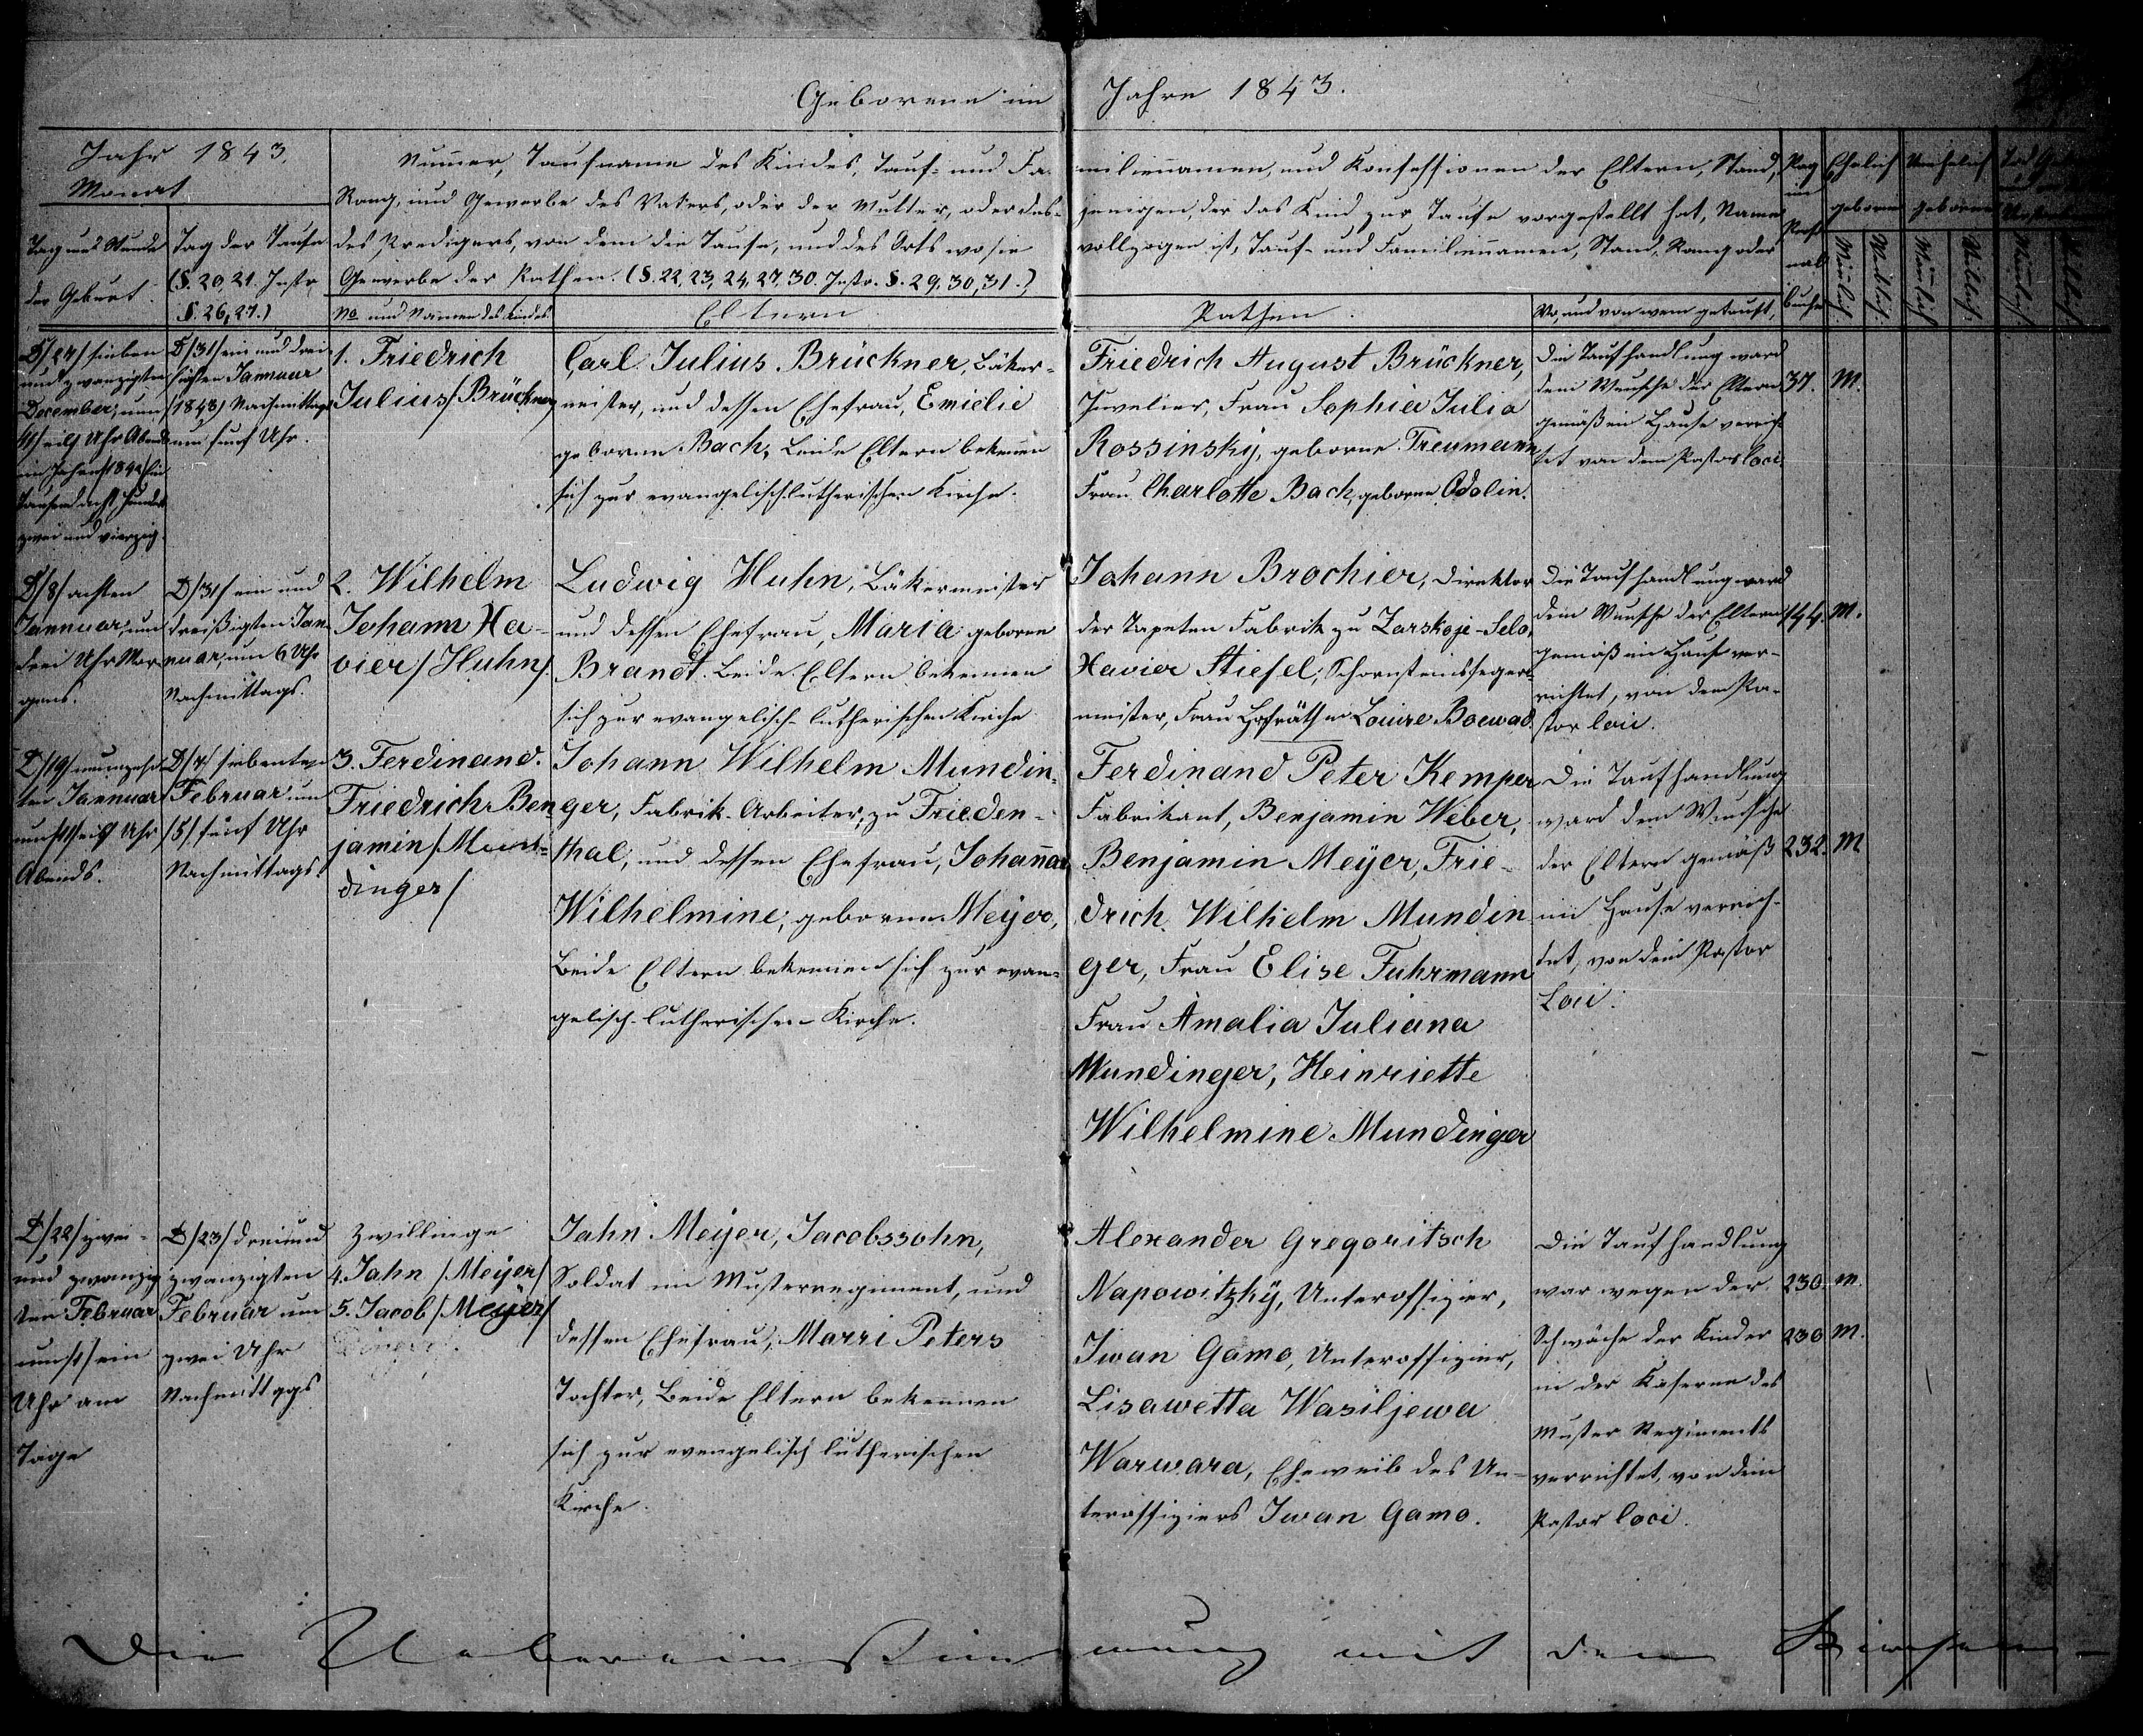 Geborene im Jahre 1843.
Jahr 1843.
Monat
Tag und Stunde
der Geburt.
Tag der Taufe
(§. 20, 21. Instr.
§. 26, 27.)
Nummer, Taufname des Kindes, Tauf- und Fa-
miliennamen, und Konfessionen der Eltern, Stand,
Rang, und Gewerbe des Vaters, oder der Mutter, oder des-
jenigen, der das Kind zur Taufe vorgestellt hat, Name
des Predigers, von dem die Taufe, und des Orts wo sie
vollzogen ist, Tauf- und Familiennamen, Stand, Rang oder
Gewerbe der Pathen. (§. 22, 23, 24, 27, 30. Instr. §. 29, 30, 31.)
No und Namen des Kindes.
Eltern
Pathen.
Wo, und von wem getauft,
Pag
im
Perso
nal
buche
Ehelich
geboren
Unehelich
geboren
Männlich.
Weiblich.
Männlich
Weiblich.
D/27/ sieben
und zwanzigten
December, um
/11/ eilf Uhr Abends
im Jahre /1842/ ein
tausend acht hundert
zwei und vierzig.
D/31/ ein und drei
ßigsten Jannuar
/1843/ Nachmittags
um fünf Uhr.
1. Friedrich
Julius /Brückner
Carl Julius Brückner, Bäker-
meister, und dessen Ehefrau, Emielie
geborne Bach, beide Eltern bekennen
sich zur evangelisch lutherischen Kirche.
Friedrich August Brückner,
Juvelier, Frau Sophia Julia
Rossinsky, geborne Treumann
Frau Charlotte Bach, geborne Odolin.
Die Taufhandlung ward
dem Wunsche der Eltern
gemäß im Hause verrich
tet von dem Pastor loci.
37. M.
D/8/ achten
Jannuar, um
drei Uhr Mor
gens.
D/31/ ein und
dreißigten Jan-
nuar, um 6 Uhr
Nachmittags.
2. Wilhelm
Johann Xa-
vier /Huhn/.
Ludwig Huhn, Bäkermeister
und dessen Ehefrau, Maria geborne
Brandt. Beide Eltern bekennen
sich zur evangelisch-lutherischen Kirche
Johann Brochier, Direktor
der Tapeten Fabrik zu Zarskoje-Selo,
Xavier Stiefel, Schornsteinfeger-
meister, Frau Hofräthin Louise Boewad.
Die Taufhandlung ward
dem Wunsche der Eltern
gemäß im Hause ver-
richtet, von dem Pa-
stor loci.
144. M.
D/19/ neunzehn
ten Jannuar
um /11/ eilf Uhr
Abends.
D/7/ siebenten
Februar um
/5/ fünf Uhr
Nachmittags.
3. Ferdinand.
Friedrich Ben-
jamin /Mun-
dinger/
Johann Wilhelm Mundin-
ger, Fabrik-Arbeiter, zu Frieden-
thal, und dessen Ehefrau, Johanna
Wilhelmine, geborne Meyer,
Beide Eltern bekennen sich zur evan-
gelisch-lutherischen Kirche.
Ferdinand Peter Kemper
Fabrikant, Benjamin Weber,
Benjamin Meyer, Frie-
drich Wilhelm Mundin
ger, Frau Elise Fuhrmann
Frau Amalia Juliana
Mundinger, Heinriette
Wilhelmine Mundinger
Die Taufhandlung
ward dem Wunsche
der Eltern gemäß
im Hause verrich-
tet, von dem Pastor
Loci.
232. M
D/22/ zwei-
und zwanzig
ten Februar
um /1/ ein
Uhr am
Tage
D/23/ drei und
zwanzigten
Februar um
zwei Uhr
Nachmittags
Zwillinge
4. Jahn /Meyer/
5. Jacob /Meyer/
Jahn Meyer, Jacobssohn,
Soldat im Musterregiment, und
dessen Ehefrau, Marri Peters
Tochter, Beide Eltern bekennen
sich zur evengelisch lutherischen
Kirche.
Alexander Gregoritsch
Napowitzky, Unteroffizier,
Iwan Gamo, Unteroffizier,
Lisawetta Wasiljewa
Warwara, Eheweib des Un-
teroffiziers Iwan Gamo.
Die Taufhandlung
war wegen der
Schwäche der Kinder
in der Kaserne des
Muster Regiments
verrichtet, von dem
Pastor loci.
230. M.
230 M.
Die Uebereinstimmung mit dem Kirchen-